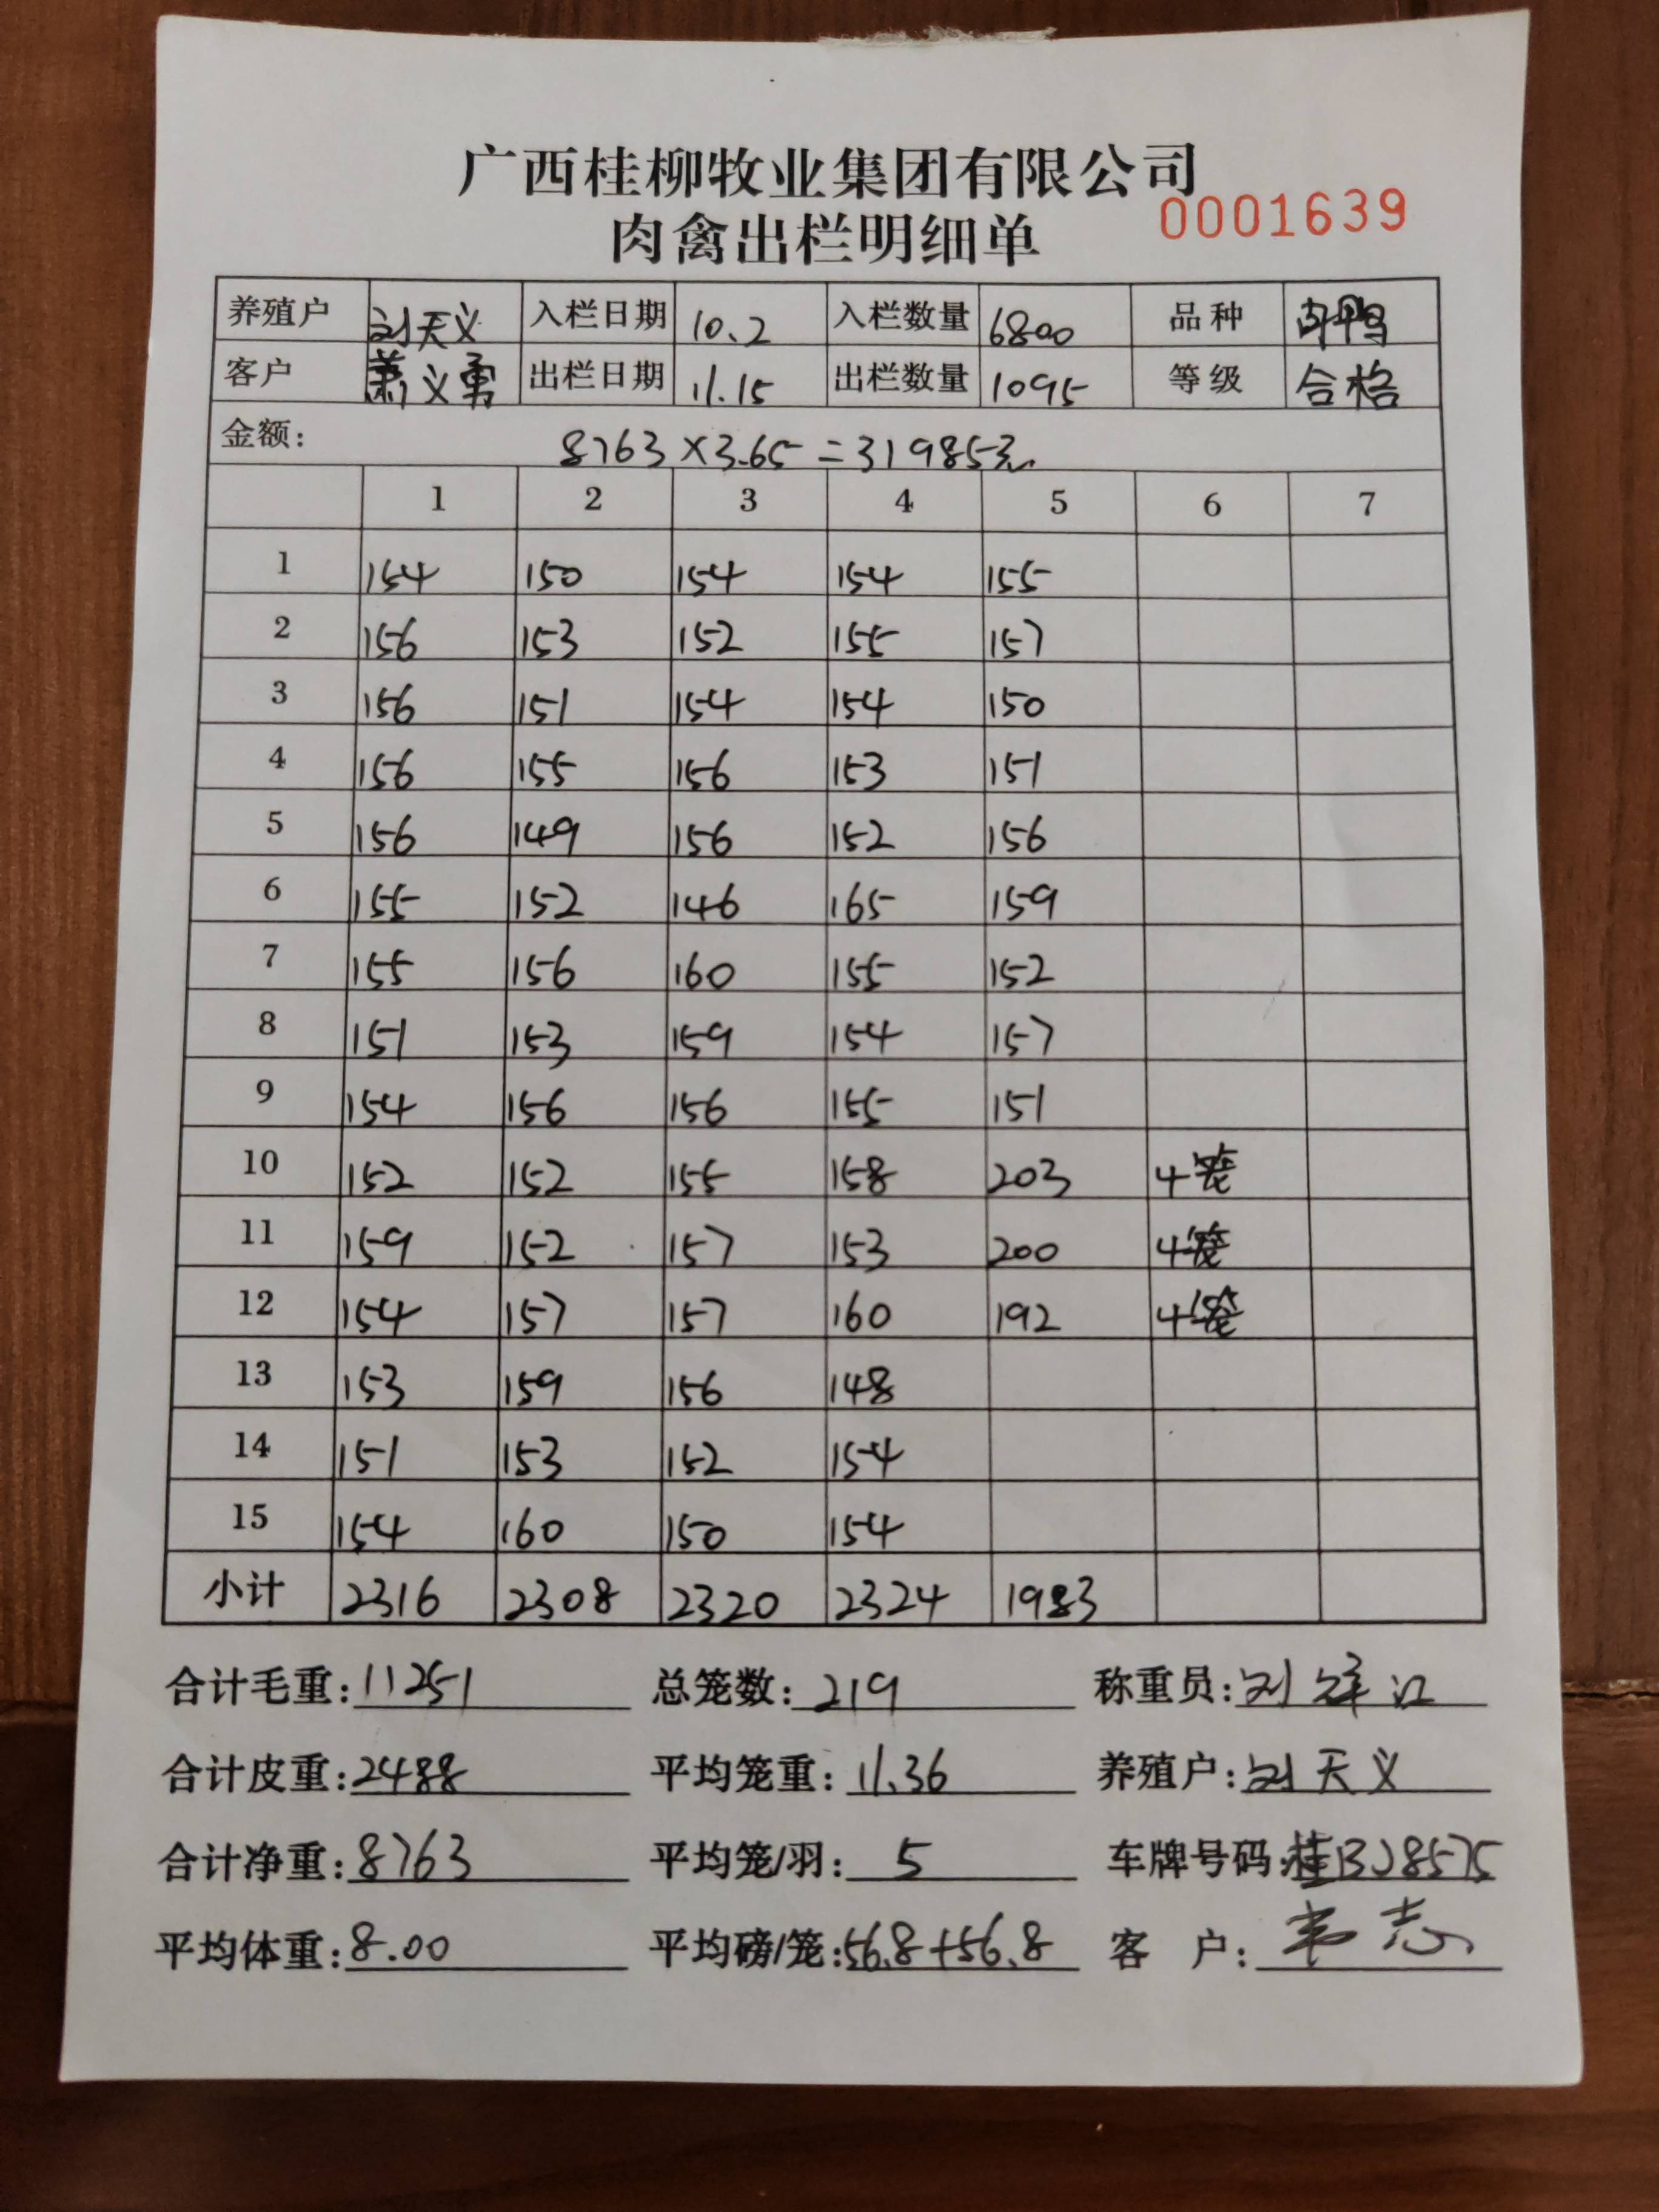 广西桂柳牧业集团有限公司
肉禽出栏明细单 0001639
养殖户 刘天义 入栏日期 10.2 入栏数量 6800 品种
客户 萧义勇 出栏日期 11.15 出栏数量 1095 等级 合格
金额: 8763×3.65=31985元
1 2 3 4 5 6 7
1 154 150 154 154 155
2 156 153 152 155 157
3 156 151 154 154 150
4 156 155 156 153 151
5 156 149 156 152 156
6 155 152 146 165 159
7 155 156 160 155 152
8 151 153 159 154 157
9 154 156 156 155 151
10 152 152 155 158 203 4笼
11 159 152 157 153 200 4笼
12 154 157 157 160 192 4笼
13 153 159 156 148
14 151 153 152 154
15 154 160 150 154
小计 2316 2308 2320 2324 1983
合计毛重:11251 总笼数:219 称重员:刘
合计皮重:2488 平均笼重:11.36 养殖户:刘天义
合计净重:8763 平均笼/羽:5 车牌号码:桂BJ8575
平均体重:8.00 平均磅/笼:56.8+56.8 客 户:韦志